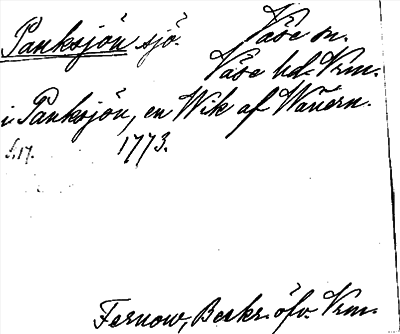 Panksjön sjö. Väse sn.
Väse hd. Vrm.
i Panksjön, en Wik af Wänern.
s. 17. 1773.
Fernow, Beskr. öfv. Vrm.